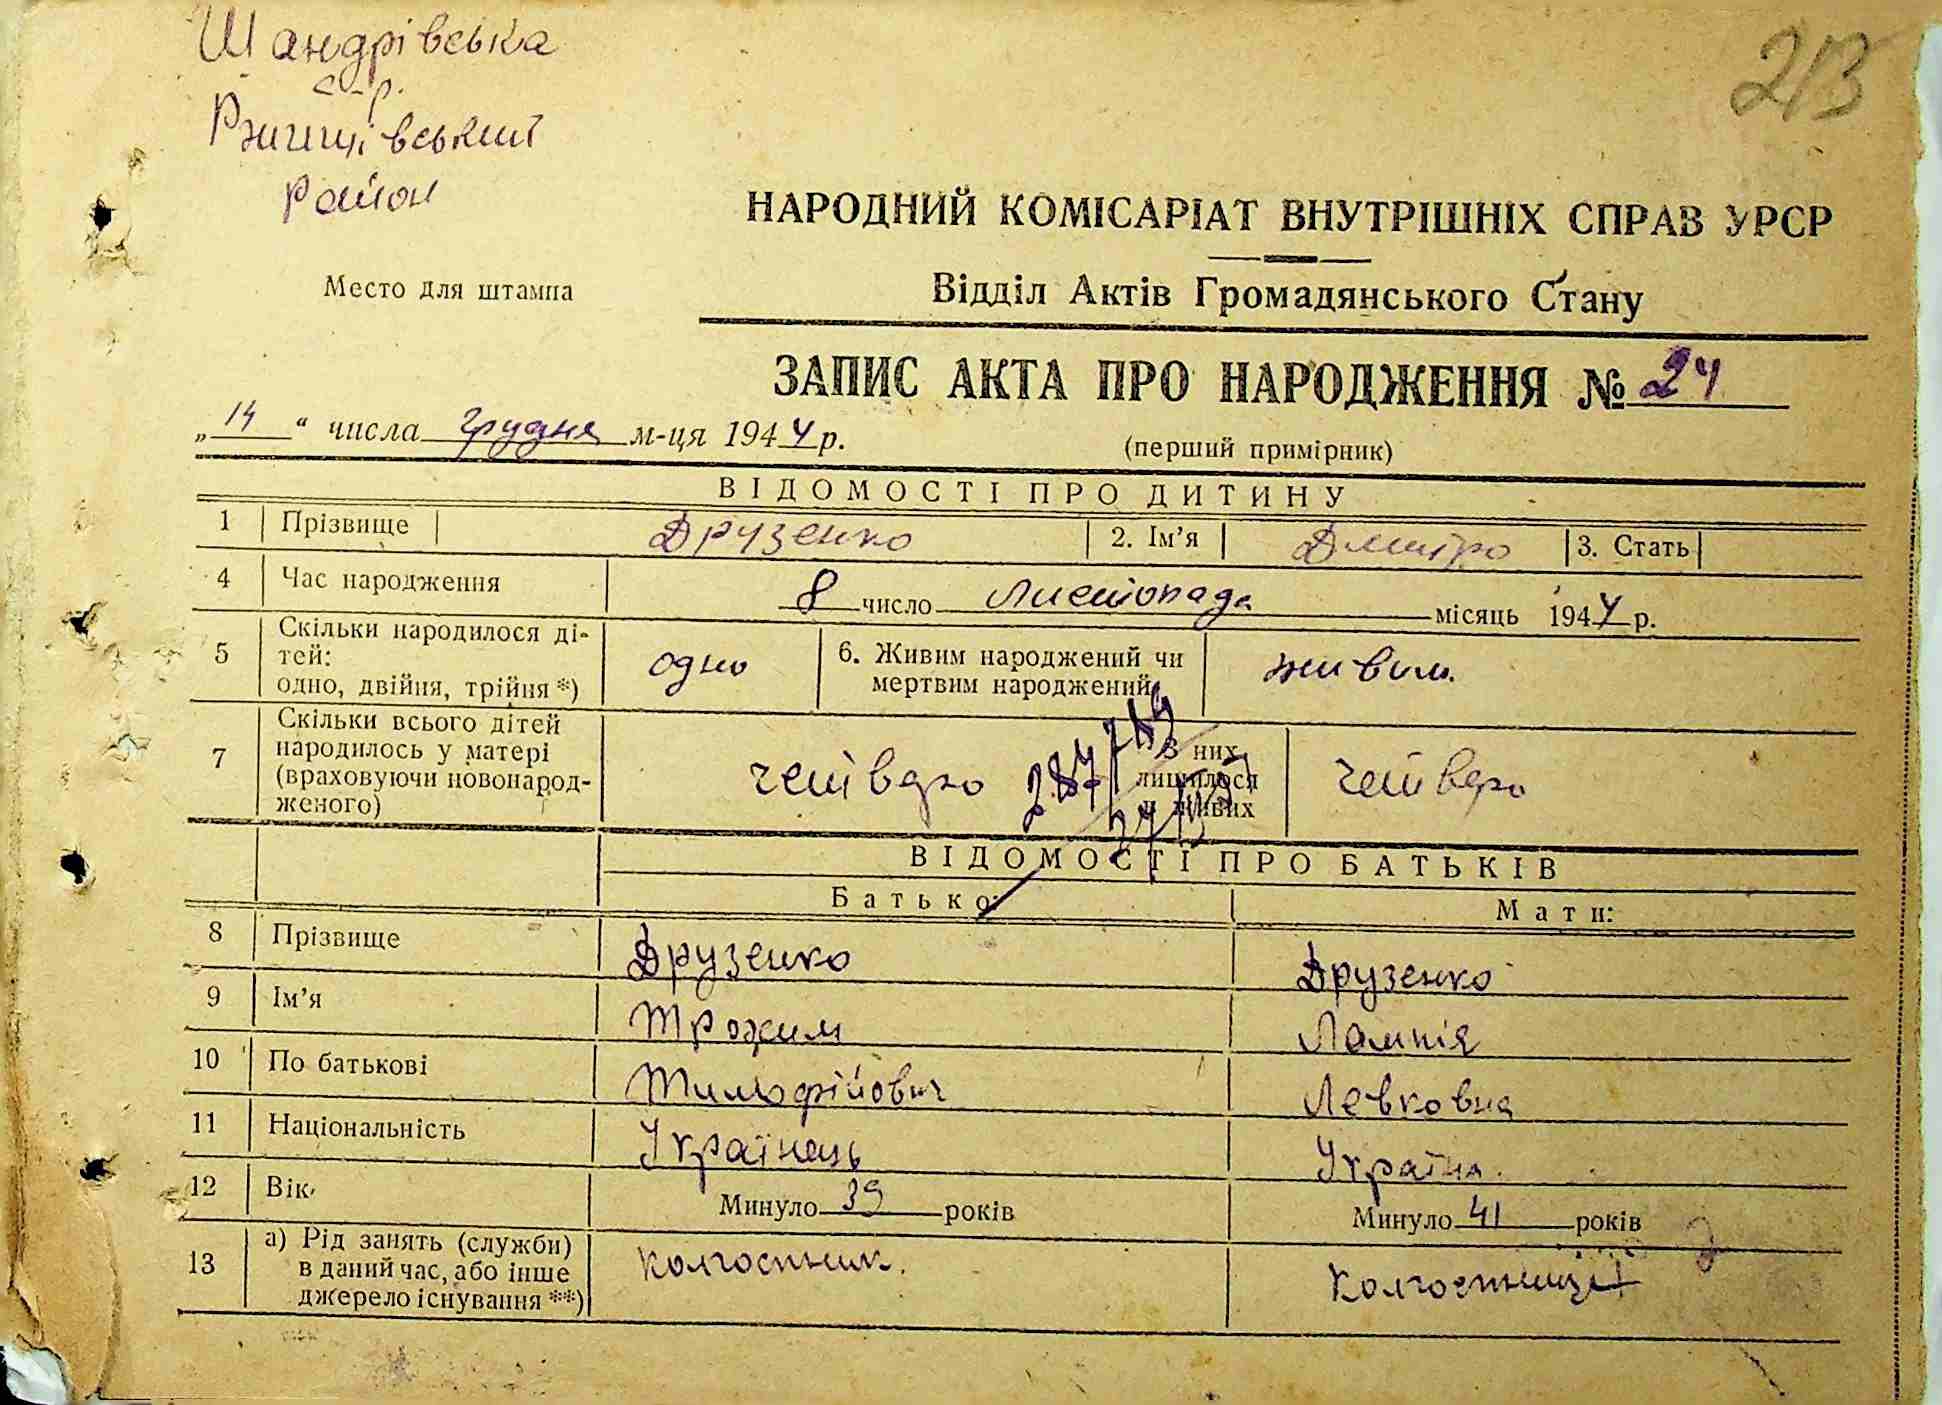 Шандрівська
с-р.
Ржищівський
район
213
НАРОДНИЙ КОМІСАРІАТ ВНУТРІШНІХ СПРАВ УРСР
Место для штампа
Відділ Актів Громадянського Стану
ЗАПИС АКТА ПРО НАРОДЖЕННЯ № 24
„14“ числа грудня м-ця 1944 р.
(перший примірник)
ВІДОМОСТІ ПРО ДИТИНУ
1 Прізвище Друзенко 2. Ім’я Дмитро 3. Стать
4 Час народження 8 число Листопада місяць 1944 р.
5 Скільки народилося ді-
тей:
одно, двійня, трійня *) одно 6. Живим народжений чи
мертвим народжений живим.
7 Скільки всього дітей
народилось у матері
(враховуючи новонарод-
женого) четверо
З них
лишилося
в живих четверо
ВІДОМОСТІ ПРО БАТЬКІВ
Батько: Мати:
8 Прізвище Друзенко Друзенко
9 Ім’я Трохим Лампія
10 По батькові Тимофійович Левковна
11 Національність Українець Україна.
12 Вік Минуло 39 років Минуло 41 років
13 а) Рід занять (служби)
в даний час, або інше
джерело існування **) колгоспник. колгоспниця